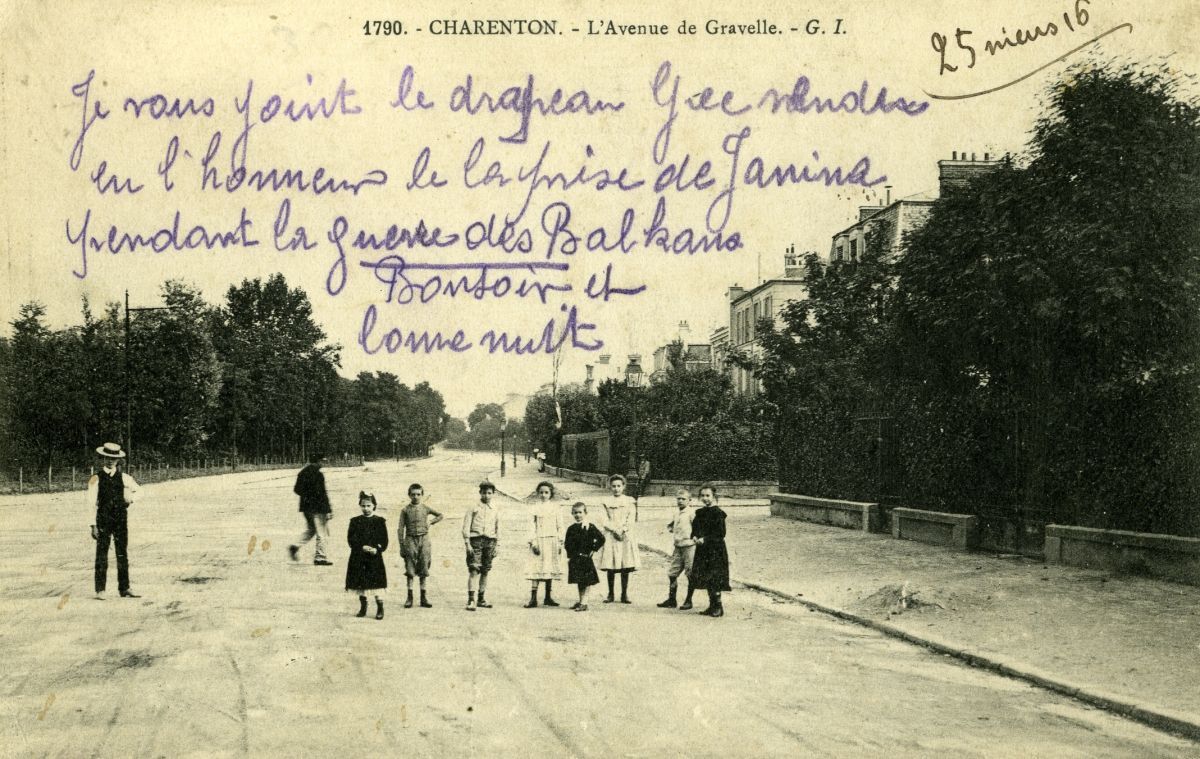 1790. - CHARENTON. - L'Avenue de Gravelle. - G. I.
25 mens 16
Je vous joint le drapeau Grec vendu
en l'honneur de la prise de Janina
pendant la guerre des Balkans
Bonsoir et
bonne nuit